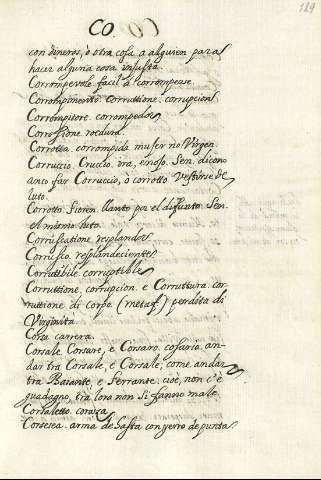 189
CO.
con dineros, o otra cosa a alguien para
hacer alguna cosa injusta.
Corrompevole. facil a corromperse.
Corrompimento. corruttione. corrupcion
Corrompitore. corrompedor
Corrosione. roedura.
Corrotta. corrompida muger no Virgen.
Corruccio. Cruccio. ira, enojo. Sen. dicono
anco far Corruccio, ò corrotto vestirse de
luto.
Corrotto. Fioren. llanto por el difunto. Sen.
el mismo luto.
Corruscatione. resplandor
Corrusco. resplandeciente
Corruttibile. corruptible
Corruttione. corrupcion. e Corruttura. cor-
ruttione di corpo. (metaf.) perdita di
Virginità.
Corsa. carrera.
Corsale. Corsare, e Corsaro. cosario. an-
dar tra Corsale, e Corsale; come andar
tra Baiante, e Ferrante. cioè, non c'è
guadagno, tra loro non si fanno male.
Corsaletto. coraza
Corsesca. arma de hasta con yerro de punta